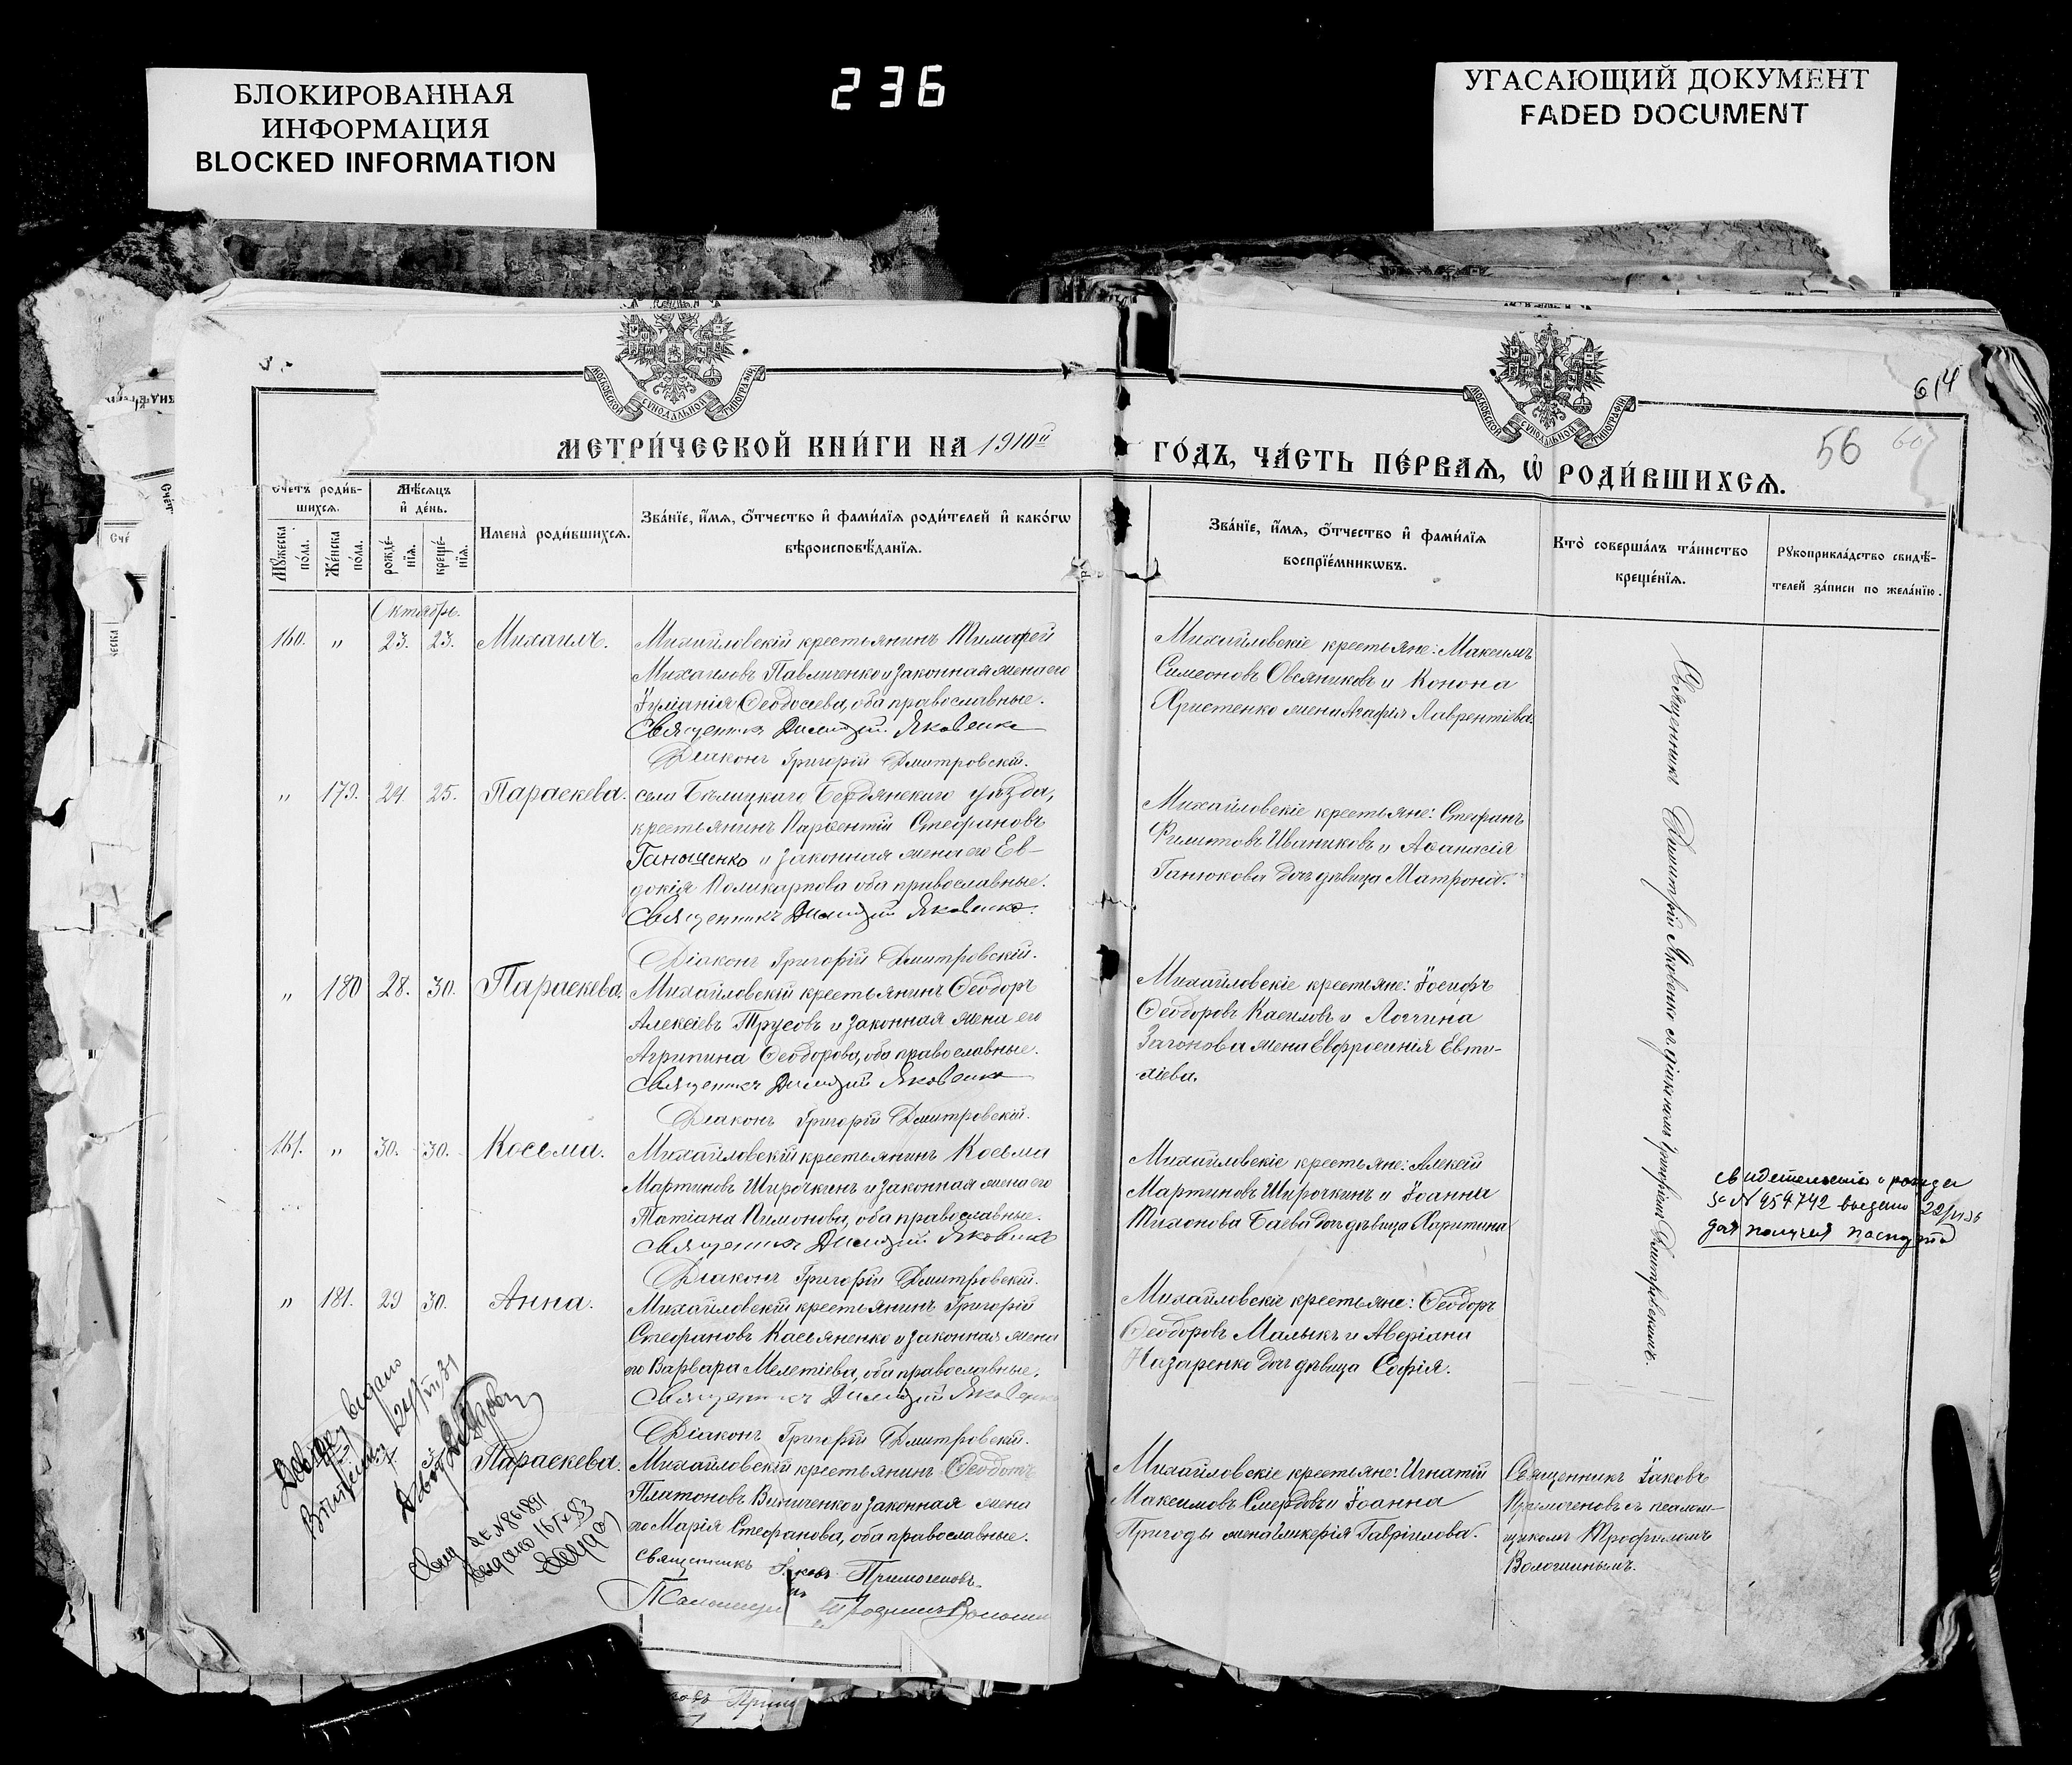 БЛОКИРОВАННАЯ
ИНФОРМАЦИЯ
BLOCKED INFORMATION
236
УГАСАЮЩИЙ ДОКУМЕНТ
FADED DOCUMENT
МОСКОВСКОЙ СѴНОДАЛЬНОЙ ТИПОГРАФІИ
МОСКОВСКОЙ СѴНОДАЛЬНОЙ ТИПОГРАФІИ
614
56 60
МЕТРИ́ЧЕСКОЙ КНИ́ГИ НА 1910й
ГО́ДЪ, ЧА́СТЬ ПЕ́РВАѦ, Ѡ҆ РОДИ́ВШИХСѦ.
Счетъ роди́вшихсѧ.
Мꙋ́жеска по́ла.
Же́нска по́ла.
Мѣ́сѧцъ и҆ де́нь.
рожде́нїѧ.
креще́нїѧ.
Имена̀ роди́вшихсѧ.
Зва́нїе, и҆́мѧ, о҆́тчество и҆ фами́лїѧ роди́телей и҆ како́гѡ
вѣроисповѣ́данїѧ.
Зва́нїе, и҆́мѧ, о҆́тчество и҆ фами́лїѧ
воспрїе́мникѡвъ.
Кто̀ соверша́лъ та́инство
креще́нїѧ.
Рꙋкоприкла́дство свидѣ́-
телей за́писи по жела́нїю.
Октябрь.
160. " 23. 23. Михаилъ.
Михайловскій крестьянинъ Тимофей
Михаиловъ Павличенко и законная жена его
Іуліанія Ѳеодосіева, оба православные.
Священникъ Димитрій Яковенко
Діаконъ Григорій Дмитровскій.
Михайловскіе крестьяне: Максимъ
Симеоновъ Овсяниковъ и Конона
Христенко жена Агафія Лаврентіева.
" 179. 24. 25. Параскева.
села Бѣлицкаго, Бердянскаго уѣзда,
крестьянинъ Парфентій Стефановъ
Ганощенко и законная жена его Ев-
докія Поликарпова оба православные.
Священникъ Димитрій Яковенко.
Діаконъ Григорій Дмитровскій.
Михайловскіе крестьяне: Стефанъ
Филиповъ Иваниковъ и Аѳанасія
Ганюкова дочь дѣвица Матрона.
" 180 28. 30. Параскева.
Михайловскій крестьянинъ Ѳеодоръ
Алексіевъ Трусовъ и законная жена его
Агрипина Ѳеодорова, оба православные.
Священникъ Димитрій Яковенко
Діаконъ Григорій Дмитровскій.
Михайловскіе крестьяне: Іосифъ
Ѳеодоровъ Касиловъ и Логгина
жена Евфросинія Евти-
хіева.
161. " 30. 30. Косьма.
Михайловскій крестьянинъ Косьма
Мартиновъ Широчкинъ и законная жена его
Татіана Пимонова, оба православные.
Священникъ Димитрій Яковенко
Діаконъ Григорій Дмитровскій.
Михайловскіе крестьяне: Алексій
Мартиновъ Широчкинъ и Іоанна
Тихонова Баева дочь дѣвица Харитина
№ 959742 22
для получ паспорта
" 181. 29 30. Анна.
Михайловскій крестьянинъ Григорій
Стефановъ Касьяненко и законная жена
его Варвара Мелетіева, оба православные.
Священникъ Димитрій Яковенко
Діаконъ Григорій Дмитровскій.
Михайловскіе крестьяне: Ѳеодоръ
Ѳеодоровъ Малыкъ и Аверіана
Назаренко дочь дѣвица Софія.
Священникъ Димитрій Яковенко съ діакономъ Григоріемъ Дмитровскимъ.
Параскева.
Михайловскій крестьянинъ Ѳеодотъ
Платоновъ Винниченко и законная жена
его Марія Стефанова, оба православные.
Священникъ Іаковъ Примогеновъ.
Михайловскіе крестьяне: Игнатій
Максимовъ Смердовъ и Іоанна
Пригоды жена Гликерія Гавріилова.
Священникъ Іаковъ
Примогеновъ съ псалом-
щикомъ Трофимомъ
Волошинымъ.
видано
24/VII 31
№ 861891
видано 16/X 33